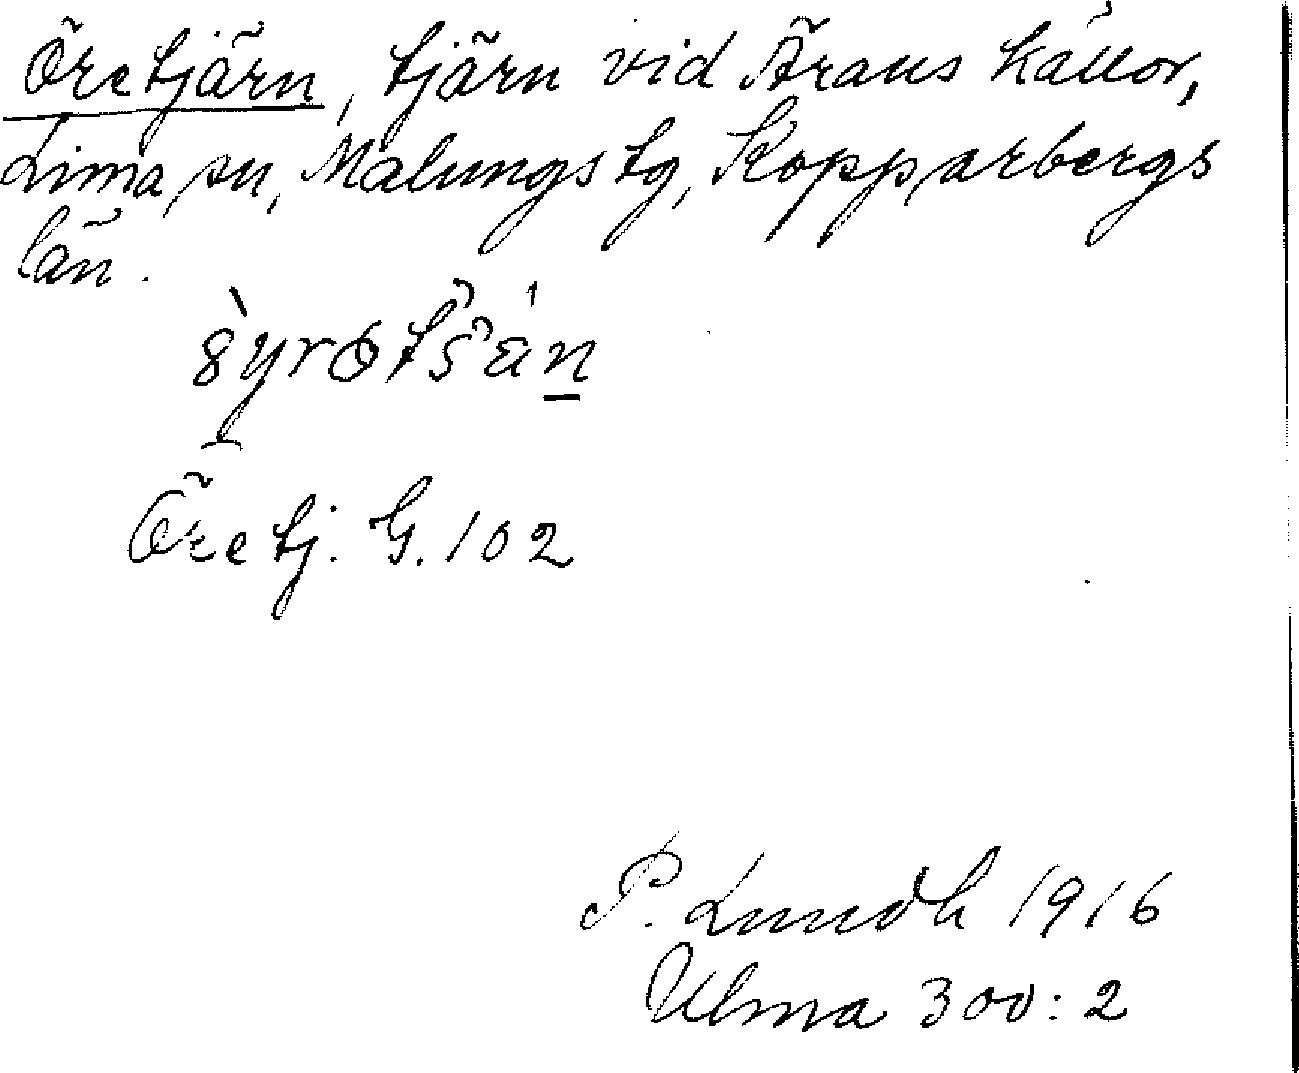 Öretjärn, tjärn vid Ärans källor,
Lima sn, Malungs tg, Kopparbergs
län.
Öretj. G. 102
P. Lundh 1916
Ulma 300:2